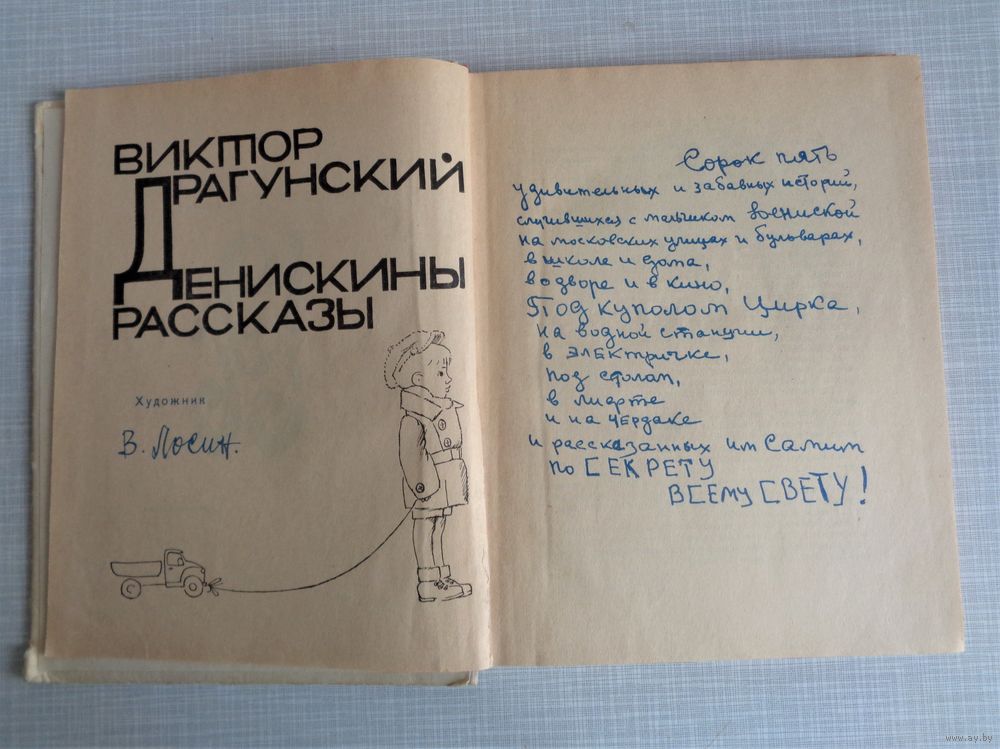 ВИКТОР
ДРАГУНСКИЙ
ДЕНИСКИНЫ
РАССКАЗЫ
Художник
В. Лосин.
Сорок пять
удивительных и забавных историй,
случившихся с мальчиком Дениской
на московских улицах и бульварах,
в школе и дома,
во дворе и в кино,
Под куполом Цирка,
на водной станции,
в электричке,
под столом,
в лифте
и на чердаке
и рассказанных им Самим
по СЕКРЕТУ
ВСЕМУ СВЕТУ!
www.ay.by